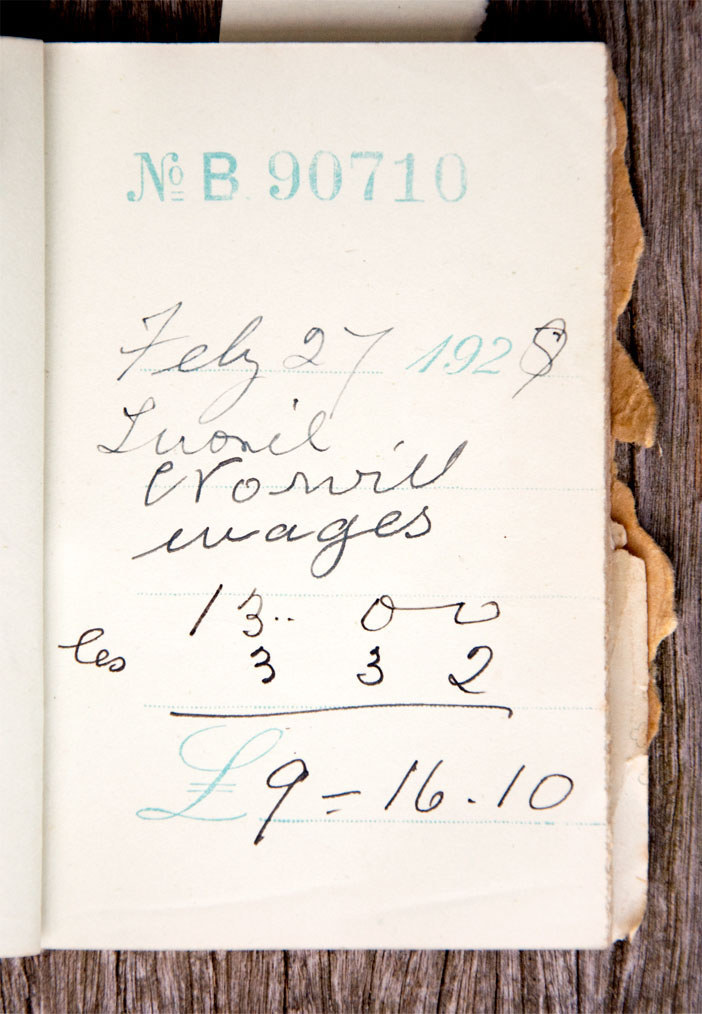 No B 90710
Feby 27 1928
Norvill
wages
13.. 0 0
les 3 3 2
£ 9 = 16.10